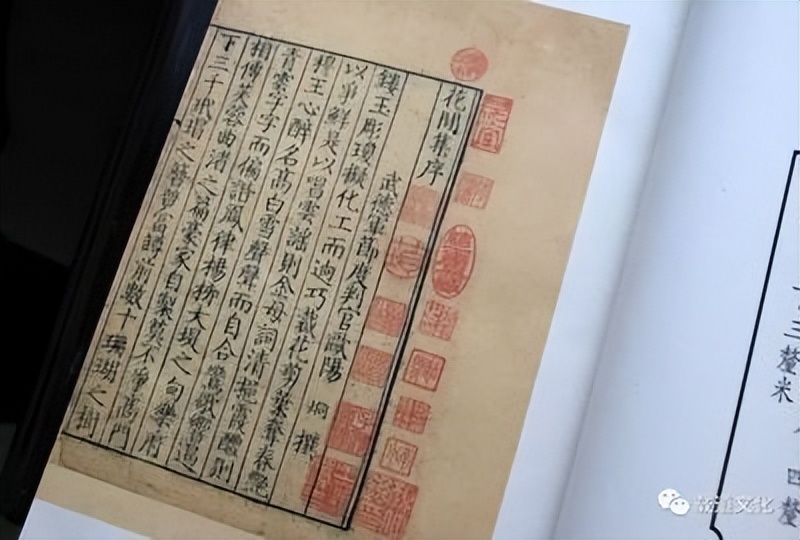 花間集序
武德軍節度判官歐陽 炯 撰
鏤玉彫瓊擬化工而逈巧裁花剪葉奪春艷
以爭鮮是以唱雲謡則金母詞清挹霞醴則
穆王心醉名高白雪聲聲而自合鸞歌響遏
青雲字字而偏諧鳳律楊柳大堤之句樂府
相傳芙蓉曲渚之篇豪家自製莫不爭高門
下三千玳瑁之簪競富罇前數十珊瑚之樹
三釐米
四釐
文化